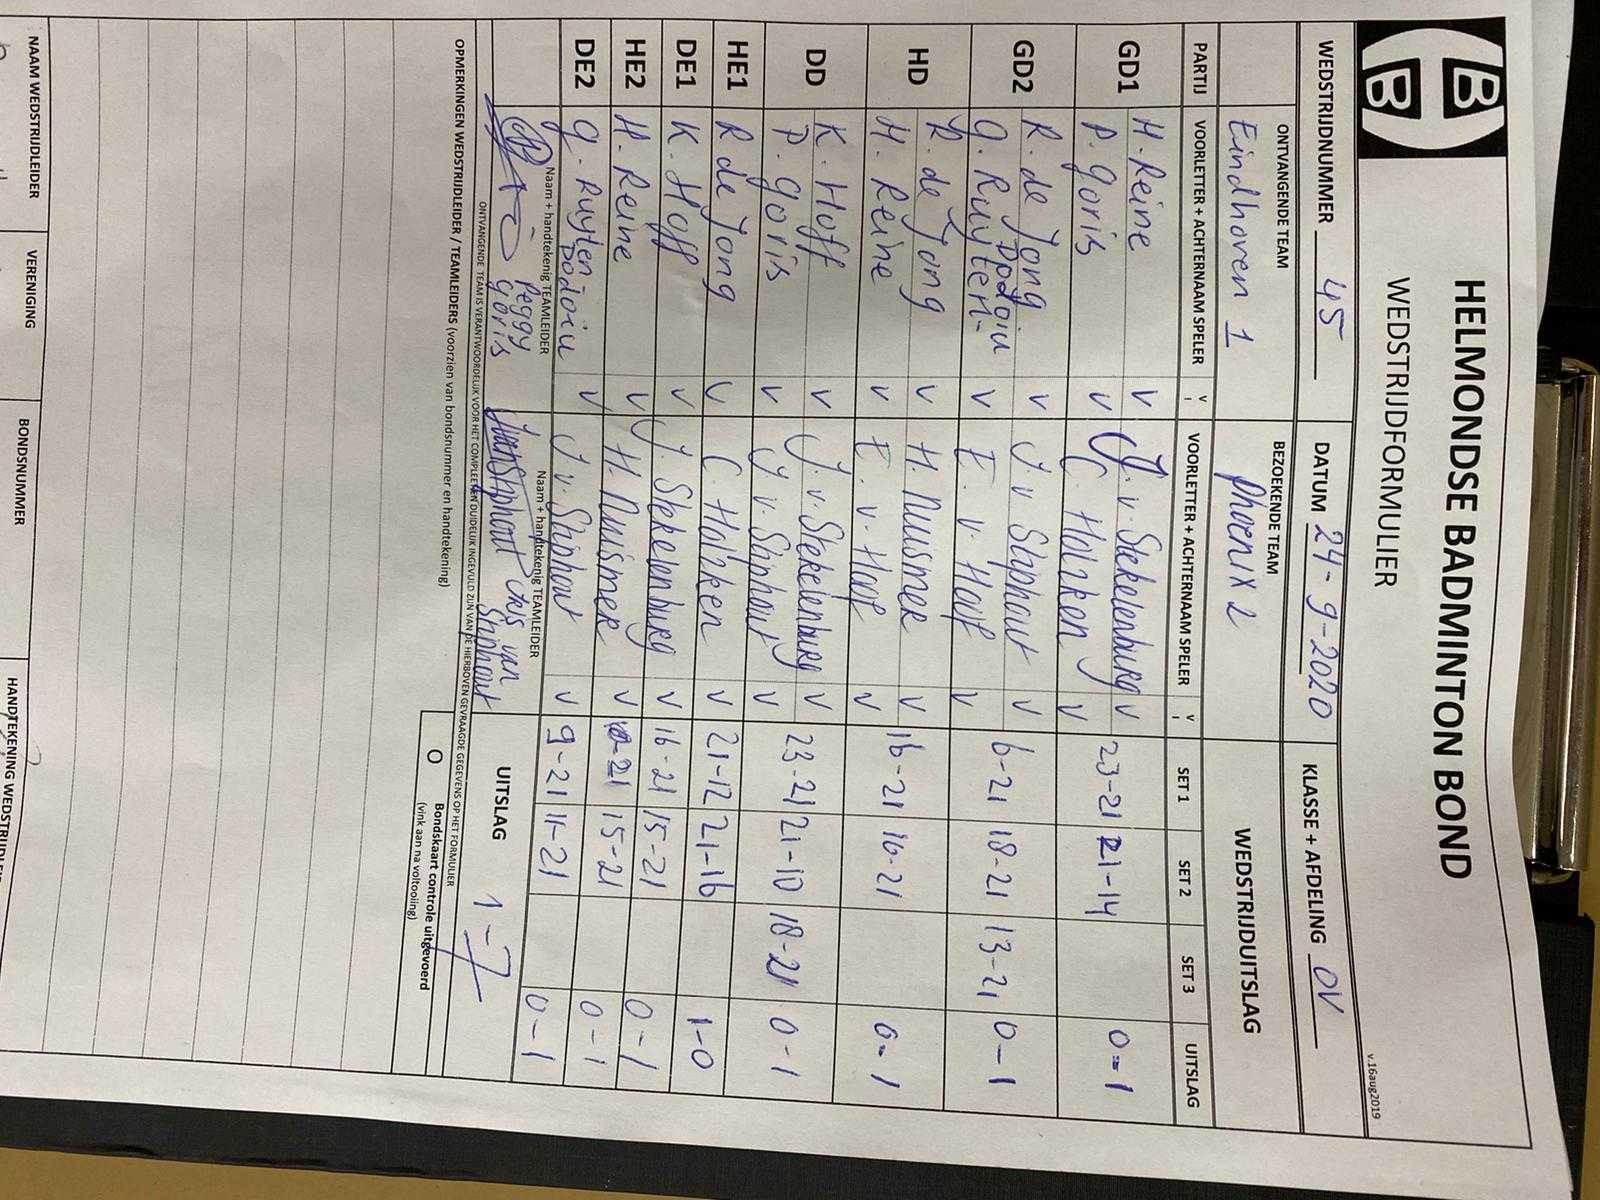 HELMONDSE BADMINTON BOND
WEDSTRIJDFORMULIER
v.16aug2019
WEDSTRIJDNUMMER 45 DATUM 24-9-2020 KLASSE + AFDELING OV
ONTVANGENDE TEAM BEZOEKENDE TEAM WEDSTRIJDUITSLAG
Eindhoven 1 Phoenix 2
PARTIJ VOORLETTER + ACHTERNAAM SPELER V VOORLETTER + ACHTERNAAM SPELER V SET 1 SET 2 SET 3 UITSLAG
GD1 H. Reine V J. v. Stekelenburg V 23-21 21-14 0-1
P. Goris V C. Holzken V
GD2 R. de Jong V J v Stiphout V 6-21 18-21 13-21 0-1
G. Ruyten- Dodoiu V E. v. Hoof V
HD R. de Jong V H. Muismer V 16-21 16-21 0-1
H. Reine V E. v. Hoof V
DD K. Hoff V J. v. Stekelenburg V 23-21 21-10 18-21 0-1
P. Goris V J v. Stiphout V
HE1 R de Jong V C. Holzken V 21-12 21-16 1-0
DE1 K. Hoff V J. Stekelenburg V 16-21 15-21 0-1
HE2 H. Reine V H. Muismer V 15-21 0-1
DE2 G. Ruyten Dodoiu V J v. Stiphout V 9-21 11-21 0-1
Naam + handtekenig TEAMLEIDER Naam + handtekenig TEAMLEIDER
Peggy Goris van Stiphout
UITSLAG 1-7
ONTVANGENDE TEAM IS VERANTWOORDELIJK VOOR HET COMPLEET EN DUIDELIJK INGEVULD ZIJN VAN DE HIERBOVEN GEVRAAGDE GEGEVENS OP HET FORMULIER
OPMERKINGEN WEDSTRIJDLEIDER / TEAMLEIDERS (voorzien van bondsnummer en handtekening)
O Bondskaart controle uitgevoerd
(vink aan na voltooiing)
NAAM WEDSTRIJDLEIDER VERENIGING BONDSNUMMER